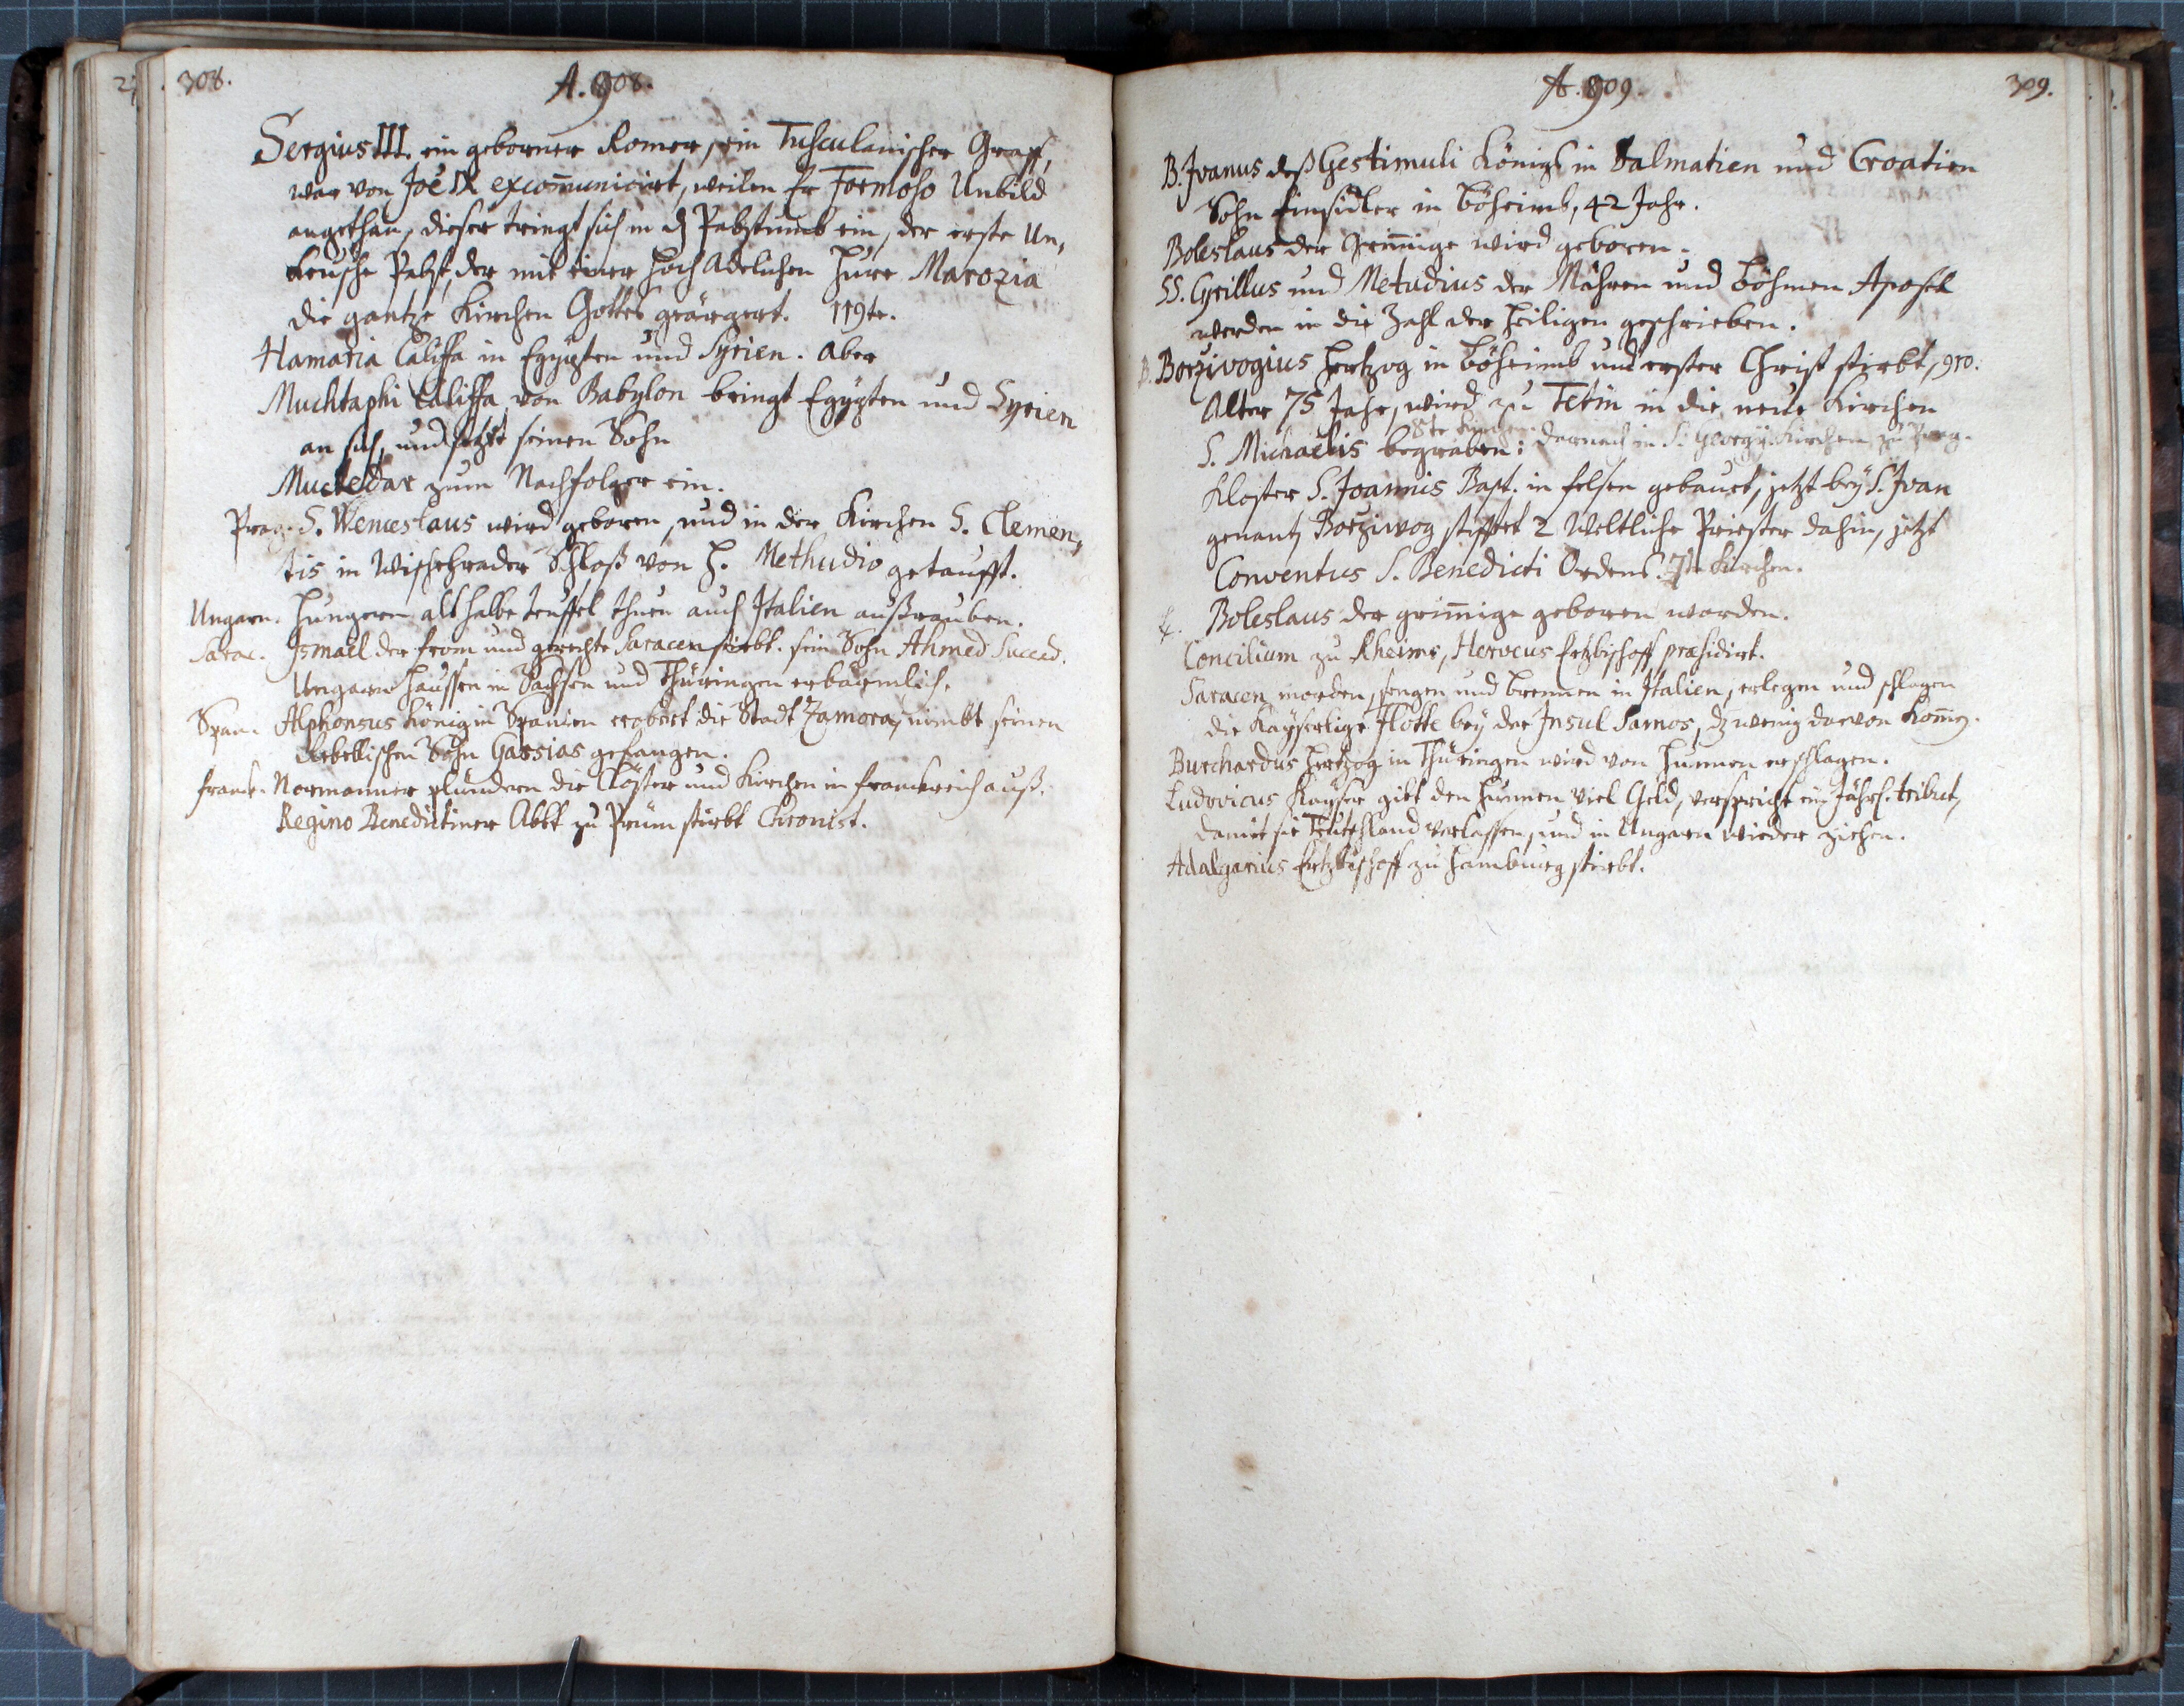 308.
A. 908.
Sergius III. ein geborner Romer, ein Tusculanischer Graff,
war von Joē IX excom̄unicirt, weilen Er Formoso Unbild
angethan, dieser tringt sich in dz Pabstumb ein, der erste Un,
keusche Pabst, der mit einer hoch Adelichen Hure Marozia
die gantze Kirchen Gottes geärgert. 119te.
Hamaria Califfa in Egÿpten und Syrien. Aber
Muchtaphi Califfa von Babylon bringt Egÿpten und Syrien
an sich, und setzet seinen Sohn
Muctedar zum Nachfolger ein.
Prag. S. Wenceslaus wird geboren, und in der Kirchen S. Clemen,
tis in Wischehrader Schloß von H. Methudio getaufft.
Ungarn. Hungern als halbe teuffel thuen auch Italien außrauben.
Sarac. Ismael der from und gerechte Saracen stirbt. sein Sohn Ahmed Succed.
Ungarn haussen in Sachsen und Thüringen erbärmlich.
Span. Alphonsus König in Spanien erobert die Stadt Zamora, nimbt seinen
Rebellischen Sohn Gassias gefangen.
Frank. Normanner plündern die Clöster und Kirchen in Franckreich auß.
Regino Benedictiner Abbt zu Prüm stirbt Chronist.
A. 909.
309.
B. Ivanus deß Gestimuli Königs in Dalmatien und Croatien
Sohn Einsidler in Böheimb, 42 Jahr.
Boleslaus der Grim̄ige wird geboren.
SS. Cyrillus und Metudius der Mähren und Böhmen Apostl
werden in die Zahl der Heiligen geschrieben.
B. Borzivogius Hertzog in Böheimb und erster Christ stirbt, 910.
Alter 75 Jahr, wird zu Tetin in die neue Kirchen
8te Kirchen.
S. Michaelis begraben: darnach in S. Georgÿ Kirchen zu Prag.
Kloster S. Joannis Bapt. in felsen gebauet, jetzt beÿ S. Ivan
genant, Borziwog stifftet 2 Weltliche Priester dahin, jetzt
Conventus S. Benedicti Ordens. 7te Kirchen.
Boleslaus der grim̄ige geboren worden.
Concilium zu Rheims, Herveus Ertzbischoff præsidirt.
Saracen morden, sengen und brennen in Italien, erlegen und schlagen
die Kaÿserlige Flotte beÿ der Insul Samos, dz wenig darvon kom̄en.
Burchardus Hertzog in Thüringen wird von Hunnen erschlagen.
Ludovicus Kaÿser gibt den Hunnen viel Geld, verspricht ein Jährl. tribut,
damit sie Teutschland verlassen, und in Ungarn wieder ziehen.
Adalgarius Ertzbischoff zu Hamburg stirbt.